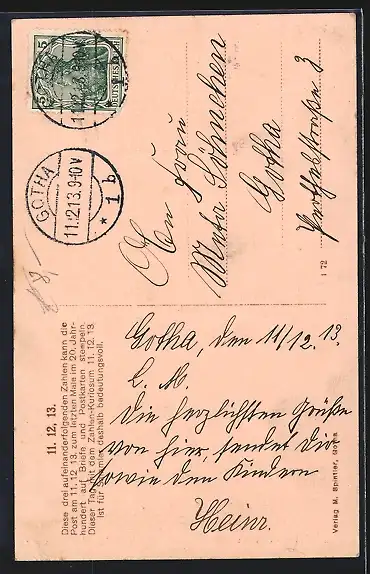 11. 12. 13.
Diese drei aufeinanderfolgenden Zahlen kann die
Post am 11. 12. 13. zum letzten Male im 20. Jahr-
hundert auf Briefe und Postkarten stempeln.
Dieser Tag mit dem Zahlen-Kuriosum 11. 12. 13
ist für Sammler deshalb bedeutungsvoll.
Gotha, den 11/12. 13.
L. M.
Die herzlichsten Grüße
von hier, sendet Dir
sowie den Kindern
Heinr.
Verlag M. Spintler, Gotha
DEUTSCHES REICH
5
GOTHA
11.12.13.9-10V
* 1 b
An Frau
Söhnchen
Gotha
1 72